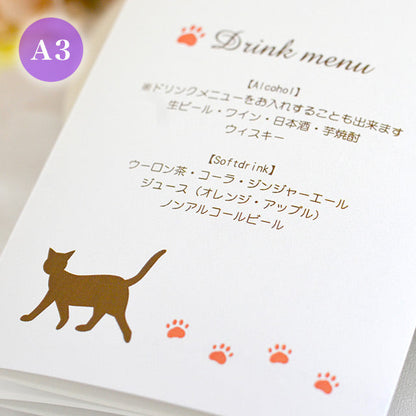 A3
Drink menu
【Alcohol】
※ドリンクメニューをお入れすることも出来ます
生ビール・ワイン・日本酒・芋焼酎
ウィスキー
【Softdrink】
ウーロン茶・コーラ・ジンジャーエール
ジュース（オレンジ・アップル）
ノンアルコールビール